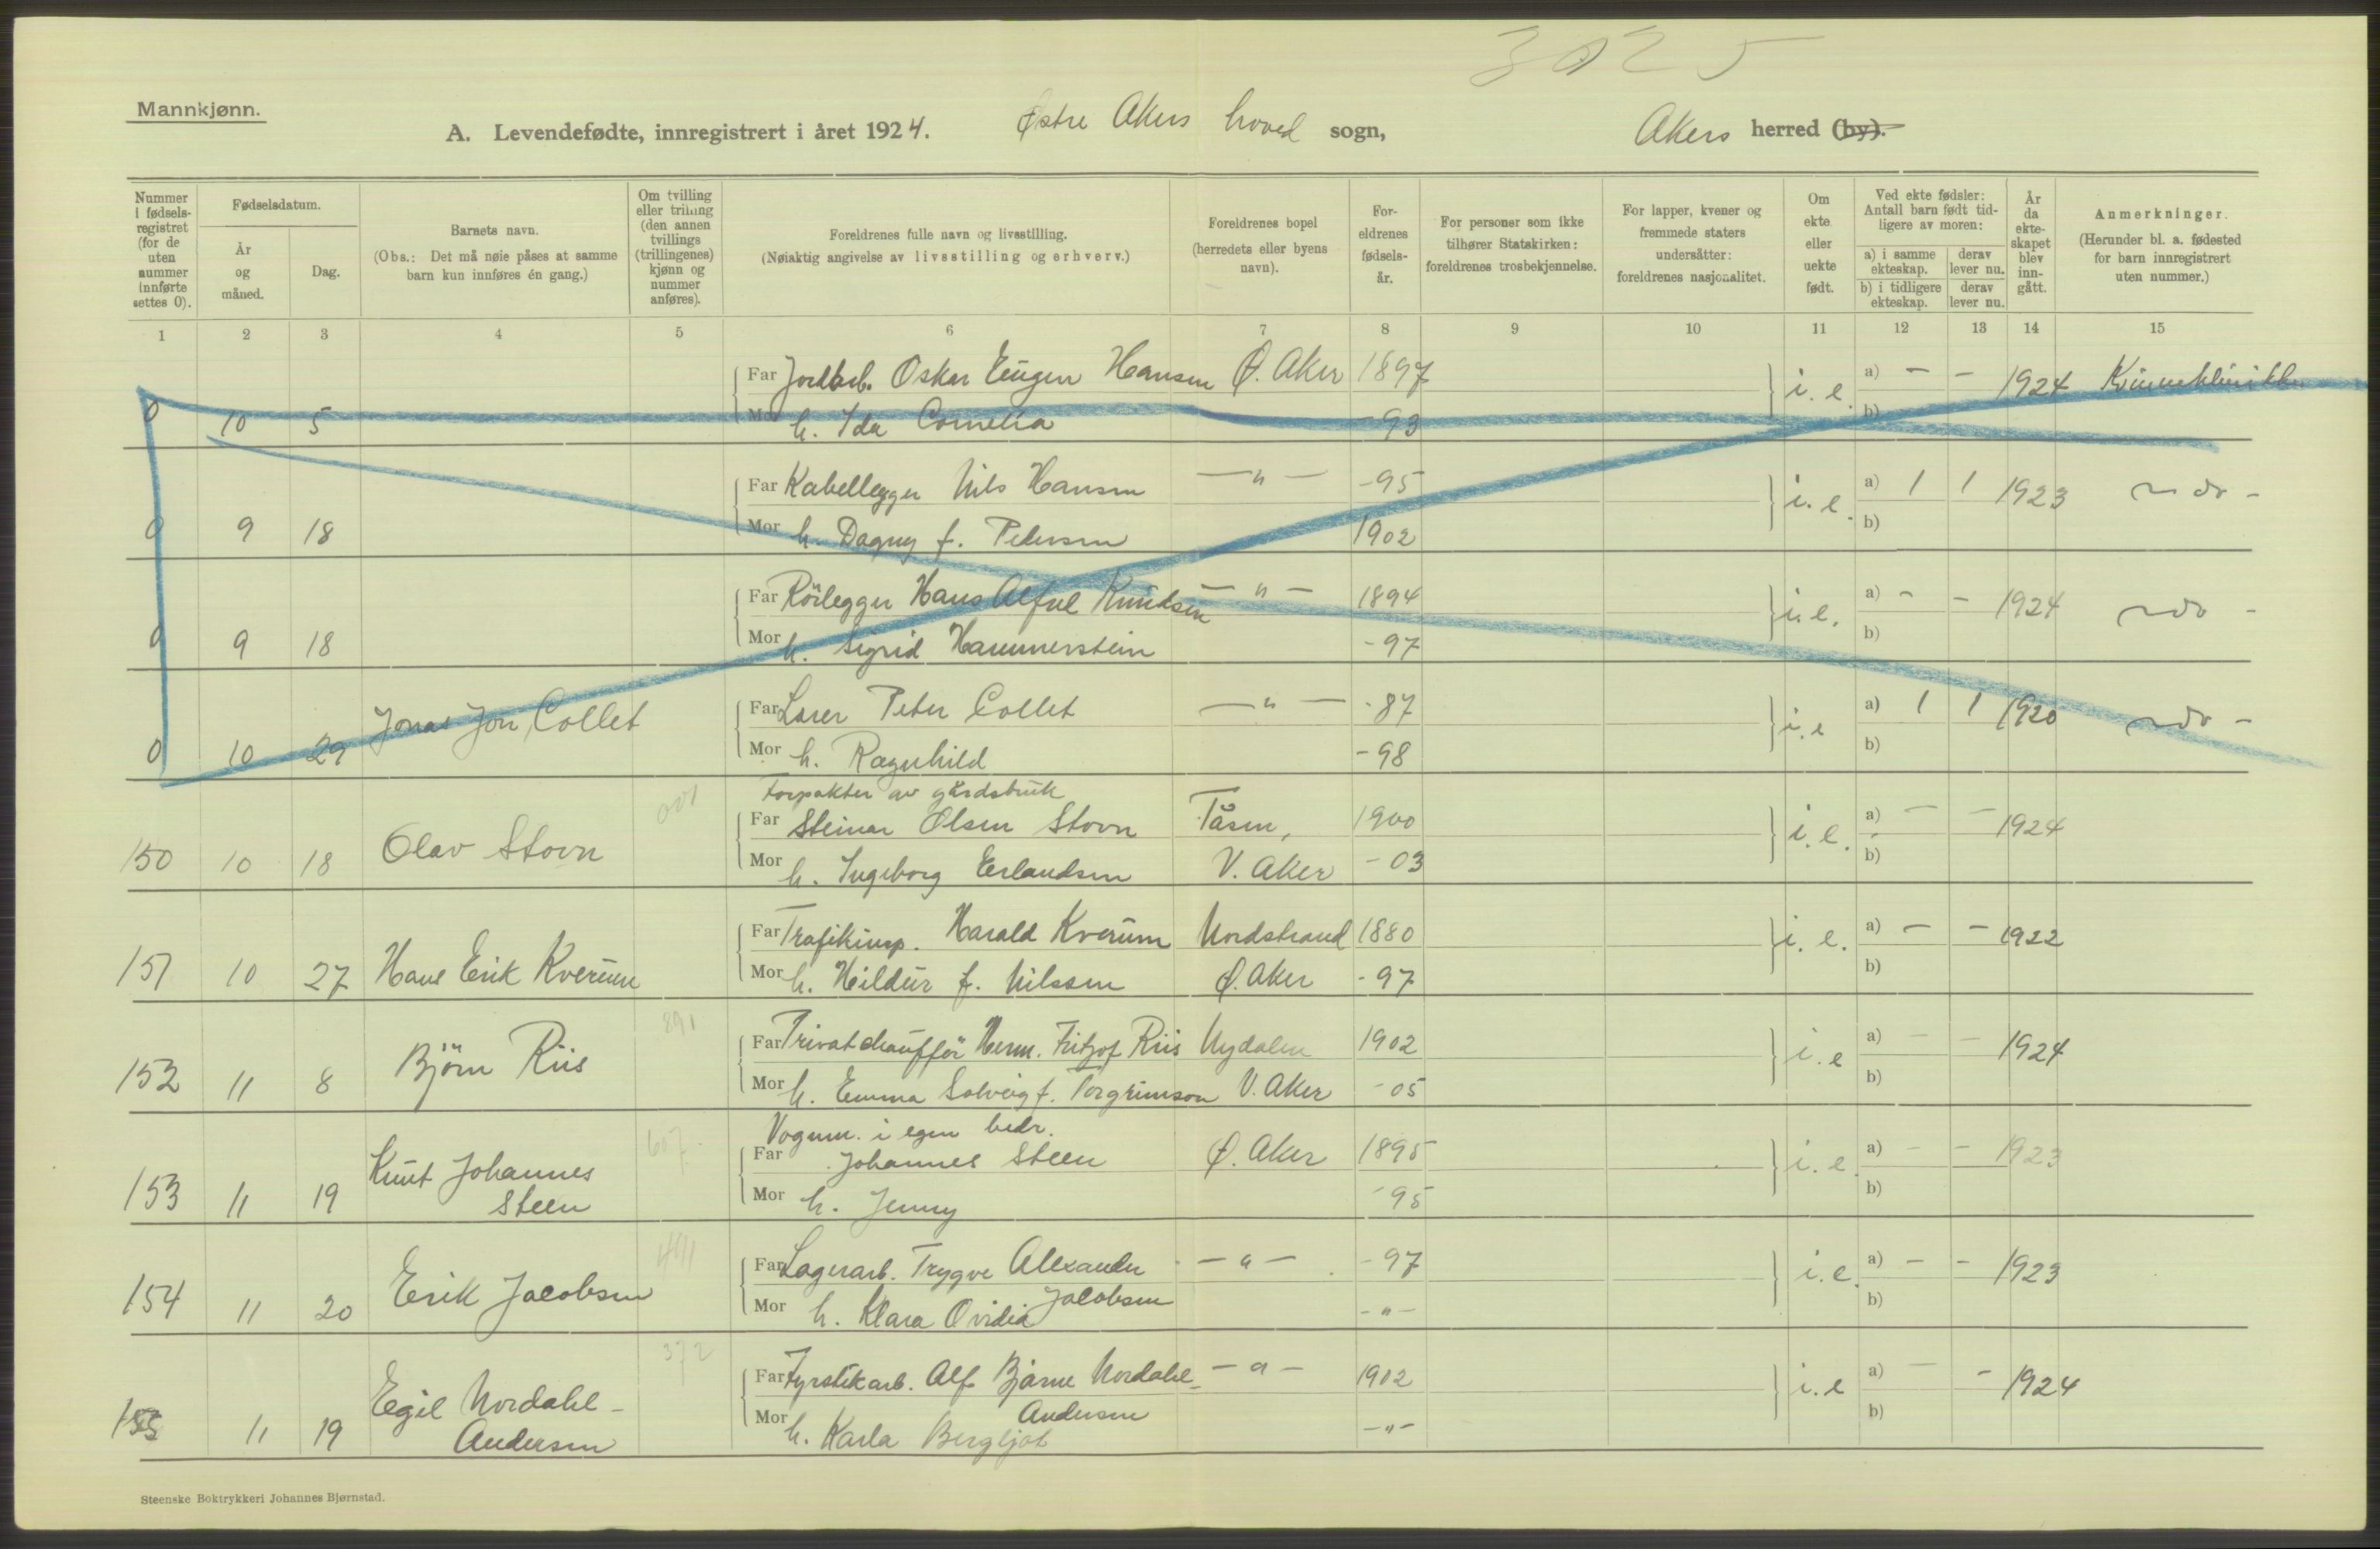 3025
Mannkjønn.
A. Levendefødte, innregistrert i året 1924. Østre Akers hoved sogn, Akers herred (by).
Nummer i fødselsregistret (for de uten nummer innførte settes 0).
Fødselsdatum.
År og måned.
Dag.
Barnets navn.
(Obs.: Det må nøie påses at samme barn kun innføres én gang.)
Om tvilling eller trilling (den annen tvillings (trillingenes) kjønn og nummer anføres).
Foreldrenes fulle navn og livsstilling.
(Nøiaktig angivelse av livsstilling og erhverv.)
Foreldrenes bopel (herredets eller byens navn).
Foreldrenes fødselsår.
For personer som ikke tilhører Statskirken: foreldrenes trosbekjennelse.
For lapper, kvener og fremmede staters undersåtter: foreldrenes nasjonalitet.
Om ekte eller uekte født.
Ved ekte fødsler: Antall barn født tidligere av moren:
a) i samme ekteskap. derav lever nu.
b) i tidligere ekteskap. derav lever nu.
År da ekteskapet blev inngått.
Anmerkninger.
(Herunder bl. a. fødested for barn innregistrert uten nummer.)
1 2 3 4 5 6 7 8 9 10 11 12 13 14 15
Far Jordarb. Oskar Eugen Hansen Ø. Aker 1897 i. e. a) - - 1924 Kvinneklinikken
0 10 5 Mor h. Ida Cornelia -93 b)
Far Kabellegger Nils Hansen -"- -95 i. e. a) 1 1 1923 - do -
0 9 18 Mor h. Dagny f. Pedersen 1902 b)
Far Rörlegger Hans Alfred Knudsen -"- 1894 i. e. a) - - 1924 - do -
0 9 18 Mor h. Sigrid Hammerstein -97 b)
Jonas Jon Collet Far Peter Collet -"- -87 i. e a) 1 1 1920 - do -
0 10 29 Mor h. Ragnhild -98 b)
001 Forpakter av gårdsbruk
Far Steinar Olsen Stovn Tåsen, 1900 i. e. a) - - 1924
150 10 18 Olav Stovn Mor h. Ingeborg Erlandsen V. Aker -03 b)
Far Trafikinsp. Harald Kverum Nordstrand 1880 i. e. a) - - 1922
151 10 27 Hans Erik Kverum Mor h. Hildur f. Nilssen Ø. Aker -97 b)
291 Far Privatchaufför Herm. Fritjof Riis Nydalen 1902 i. e a) - - 1924
152 11 8 Björn Riis Mor h. Emma Solveig f. Torgrimson V. Aker -05 b)
607 Vognm. i egen bedr.
Far Johannes Steen Ø. Aker 1895 i. e. a) - - 1923
153 11 19 Knut Johannes Steen Mor h. Jenny -95 b)
Far Lagerarb. Trygve Alexander -"- -97 i. e. a) - - 1923
Jacobsen
154 11 20 Erik Jacobsen Mor h. Klara Ovidia -"- b)
372 Far Fyrstikarb. Alf Bjarne Nordahl- -"- 1902 i. e a) - - 1924
Andersen
155 11 19 Egil Nordahl-Andersen Mor h. Karla Bergljot -"- b)
Steenske Boktrykkeri Johannes Bjørnstad.